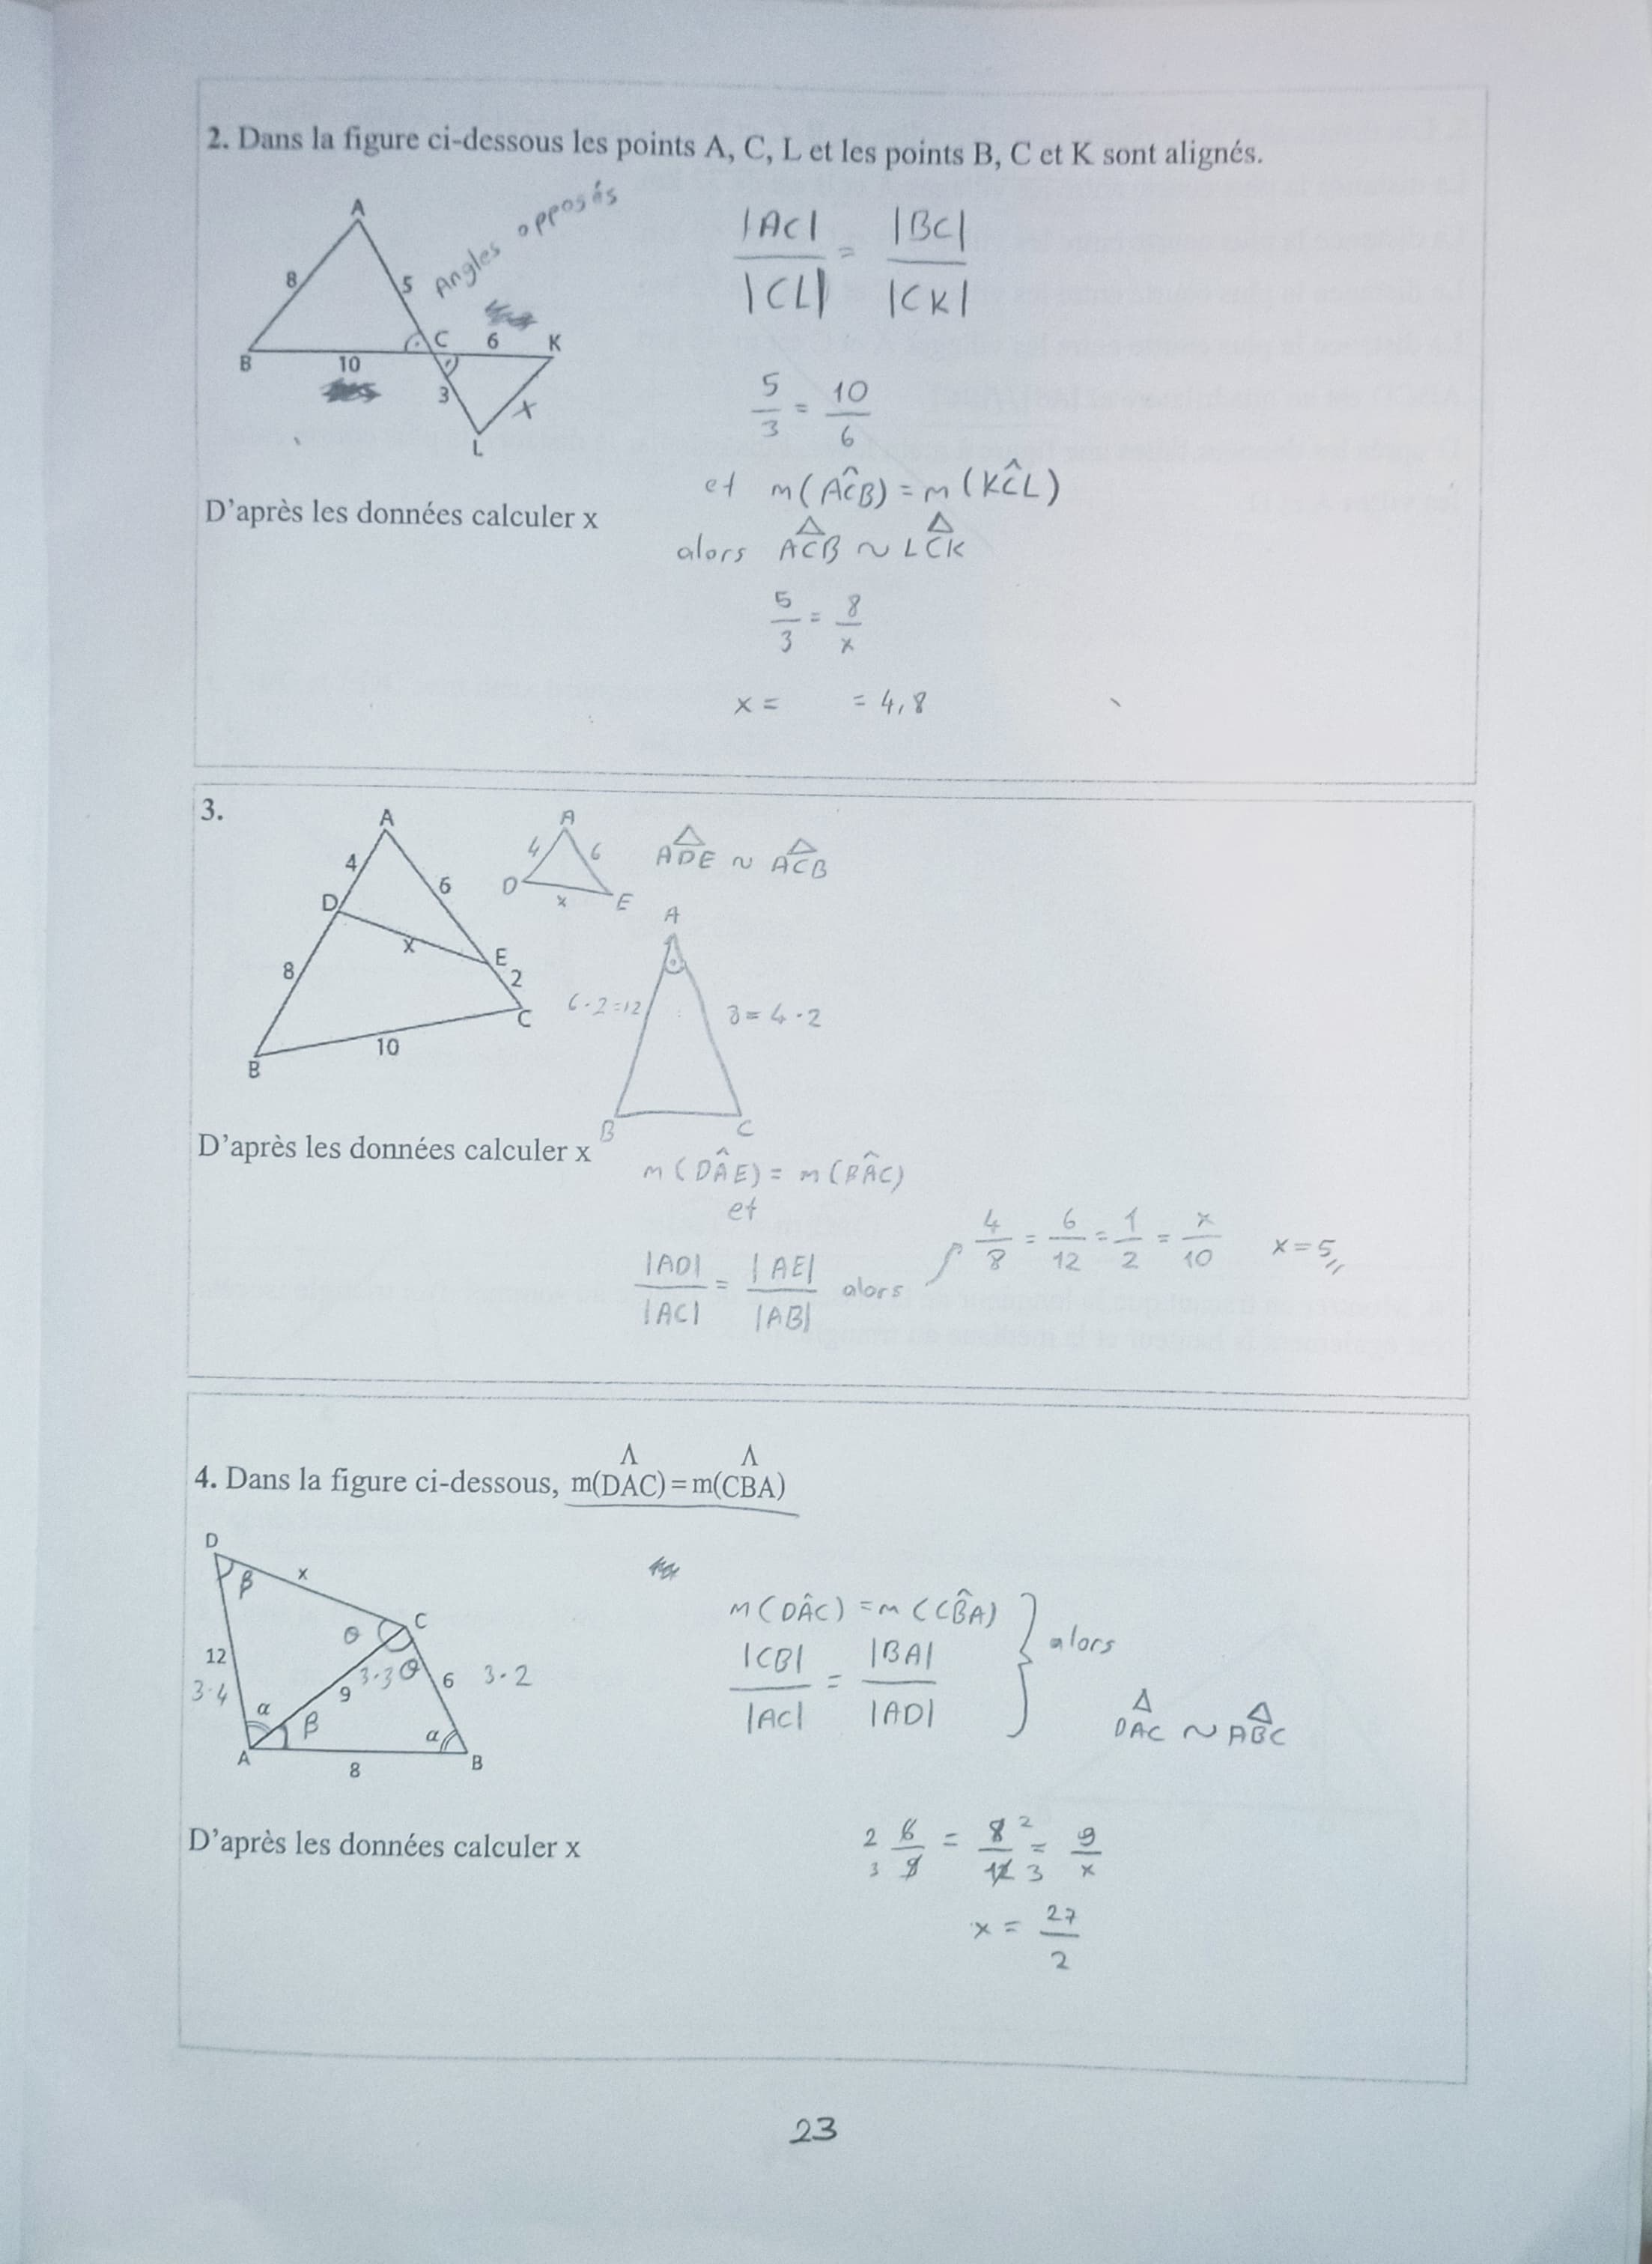 2. Dans la figure ci-dessous les points A, C, L et les points B, C et K sont alignés.
A
8
5
Angles opposés
B
10
C
6
K
3
x
L
|AC| / |CL| = |BC| / |CK|
5/3 = 10/6
et m(AĈB) = m(KĈL)
alors ACB ~ LCK
D'après les données calculer x
5/3 = 8/x
x = = 4,8
3.
A
4
6
D
x
E
8
2
C
10
B
A
4
6
D
x
E
ADE ~ ACB
A
6·2=12
8=4·2
B
C
D'après les données calculer x
m(DÂE) = m(BÂC)
et
|AD| / |AC| = |AE| / |AB| alors
4/8 = 6/12 = 1/2 = x/10 x = 5
4. Dans la figure ci-dessous, m(DAC)=m(CBA)
D
β
x
C
θ
12
3·4
3·3
θ
9
6
3·2
α
β
α
A
8
B
m(DÂC) = m(CB̂A)
|CB| / |AC| = |BA| / |AD|
alors
DAC ~ ABC
D'après les données calculer x
2 6 / 3 9 = 8 2 / 12 3 = 9/x
x = 27/2
23